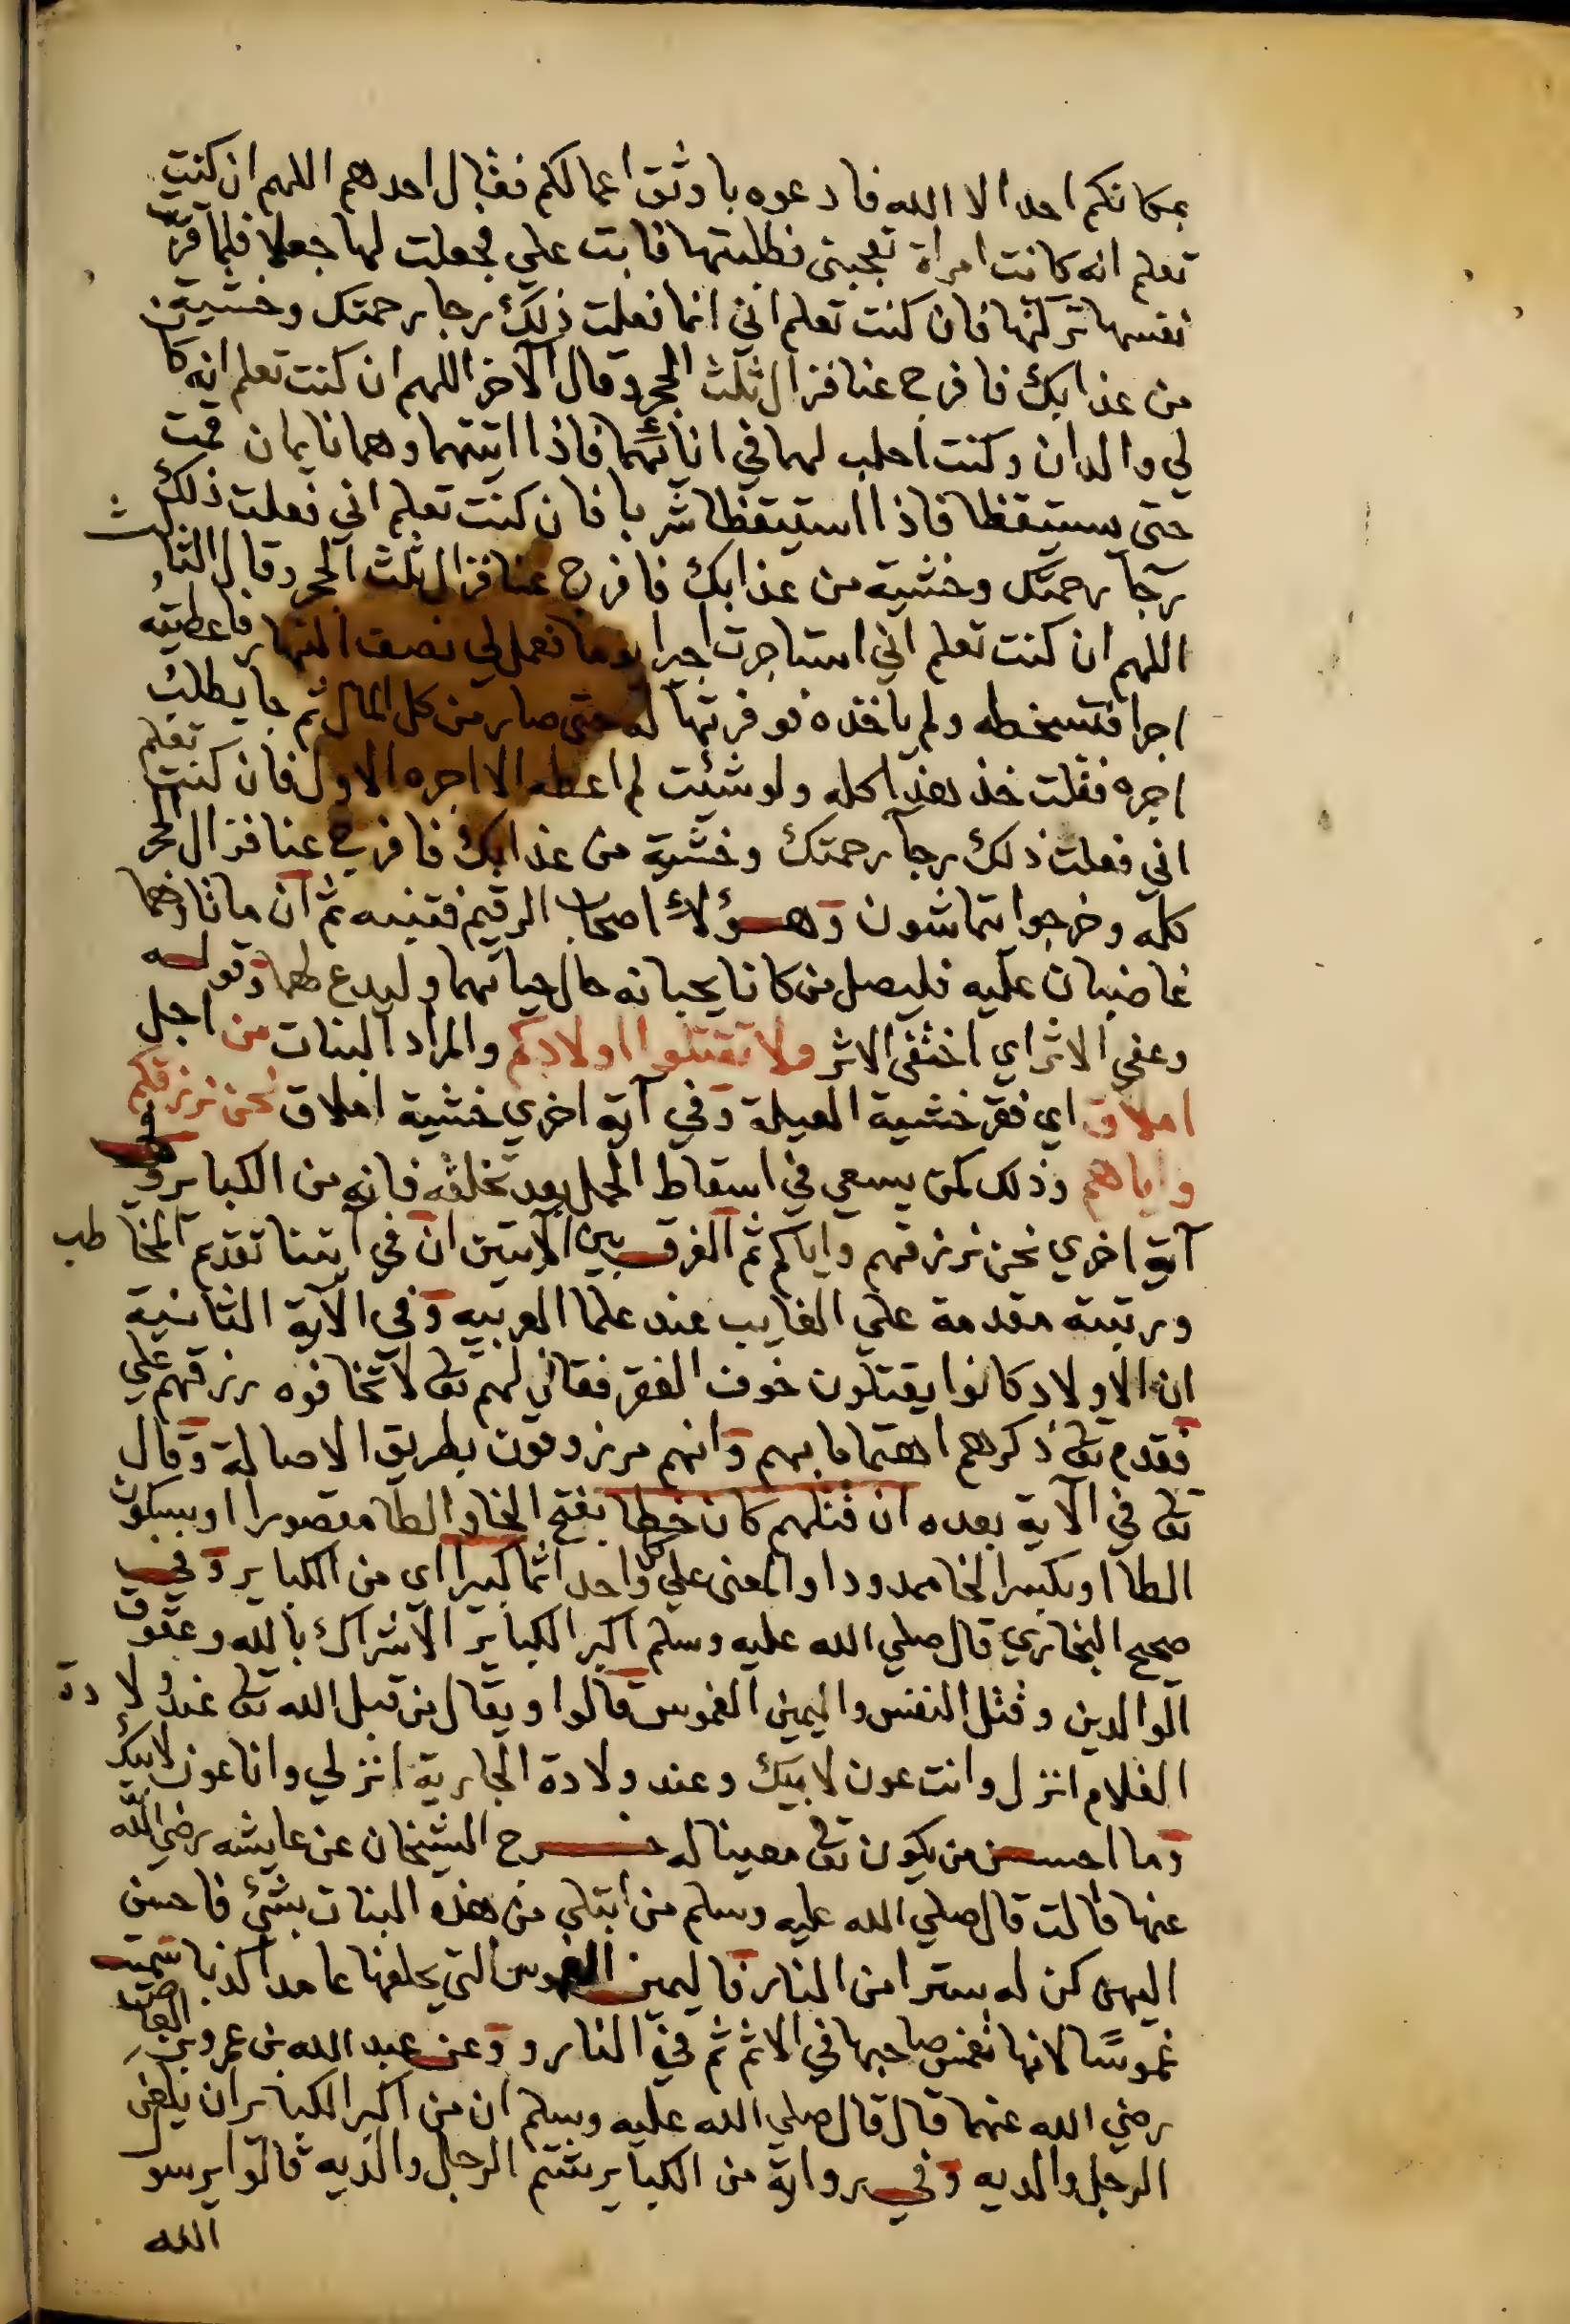 بمكانكم احد الا الله فادعوه باوثق اعمالكم فقال احدهم اللهم ان كنت
تعلم انه كانت امراة تعجبنى فطلبتها فابت علي فجعلت لها جعلا فلما قرّبت
نفسها تركتها فان كنت تعلم اني انما فعلت ذلك رجا رحمتك وخشية
من عذابك فافرج عنا فزال ثلث الحجر وقال الآخر اللهم ان كنت تعلم انه كان
لي والدان وكنت احلب لهما في انائهما فاذا اتيتهما وهما نايمان قمت
حتى يستيقظا فاذا استيقظا شربا فان كنت تعلم اني فعلت ذلك
رجآ رحمتك وخشية من عذابك فافرج عنا فزال ثلث الحجر وقال الثالث
اللهم ان كنت تعلم اني استاجرت اجيرا يوما فعمل لي نصف النهار فاعطيته
اجرا فتسخطه ولم ياخذه فوفرتها له حتى صار من كل المال ثم جا يطلب
اجره فقلت خذ هذا كله ولو شئت لم اعطه الا اجره الاول فان كنت تعلم
اني فعلت ذلك رجآ رحمتك وخشية من عذابك فافرج عنا فزال الحجر
كله وخرجوا يتماشون وهؤلاء اصحاب الرقيم فتنبه ثم ان ماتا وهما
غاضبان عليه فليصل من كانا يحبانه حال حياتهما وليدع لهما وقوله
وعفي الاثر اي اختفى الاثر ولا تقتلوا اولادكم والمراد البنات من اجل
املاق اي فقر خشية العيلة وفي آية اخري خشية املاق نحن نرزقكم
واياهم وذلك كمن يسعي في اسقاط الحمل بعد تخلقه فانه من الكباير وفي
آية اخري نحن نرزقهم واياكم ثم الفرق بين الآيتين ان في آيتنا تقدم المخاطب
ورتبته مقدمة علي الغايب عند علما العربيه وفي الآية الثانية
ان الاولاد كانوا يقتلون خوف الفقر فقال لهم تعالى لا تخافوه رزقهم علي
فقدم تعالى ذكرهم اهتماما بهم وانهم مرزوقون بطريق الاصالة وقال
تعالى في الآية بعده ان قتلهم كان خطا بفتح الخا والطا مقصورا او بسكون
الطا او بكسر الخا ممدودا والمعنى علي كل واحد اثما كبيرا اي من الكباير وفي
صحيح البخاري قال صلي الله عليه وسلم اكبر الكباير الاشراك بالله وعقوق
الوالدين وقتل النفس واليمين الغموس قالوا ويقال من قبل الله تعالى عند ولادة
الغلام انزل وانت عون لابيك وعند ولادة الجارية انزلي وانا عون لابيك
وما احسن من يكون تعالى معينا له خرج الشيخان عن عايشه رضي الله
عنها قالت قال صلي الله عليه وسلم من ابتلي من هذه البنات بشئ فاحسن
اليهن كن له سترا من النار فاليمين الغموس التي يحلفها عامدا كذبا سميت
غموسًا لانها تغمس صاحبها في الاثم ثم في النار وعن عبد الله بن عمرو بن العاص
رضي الله عنهما قال قال صلي الله عليه وسلم ان من اكبر الكباير ان يلعن
الرجل والديه وفي رواية من الكباير شتم الرجل والديه قالوا يرسو
الله